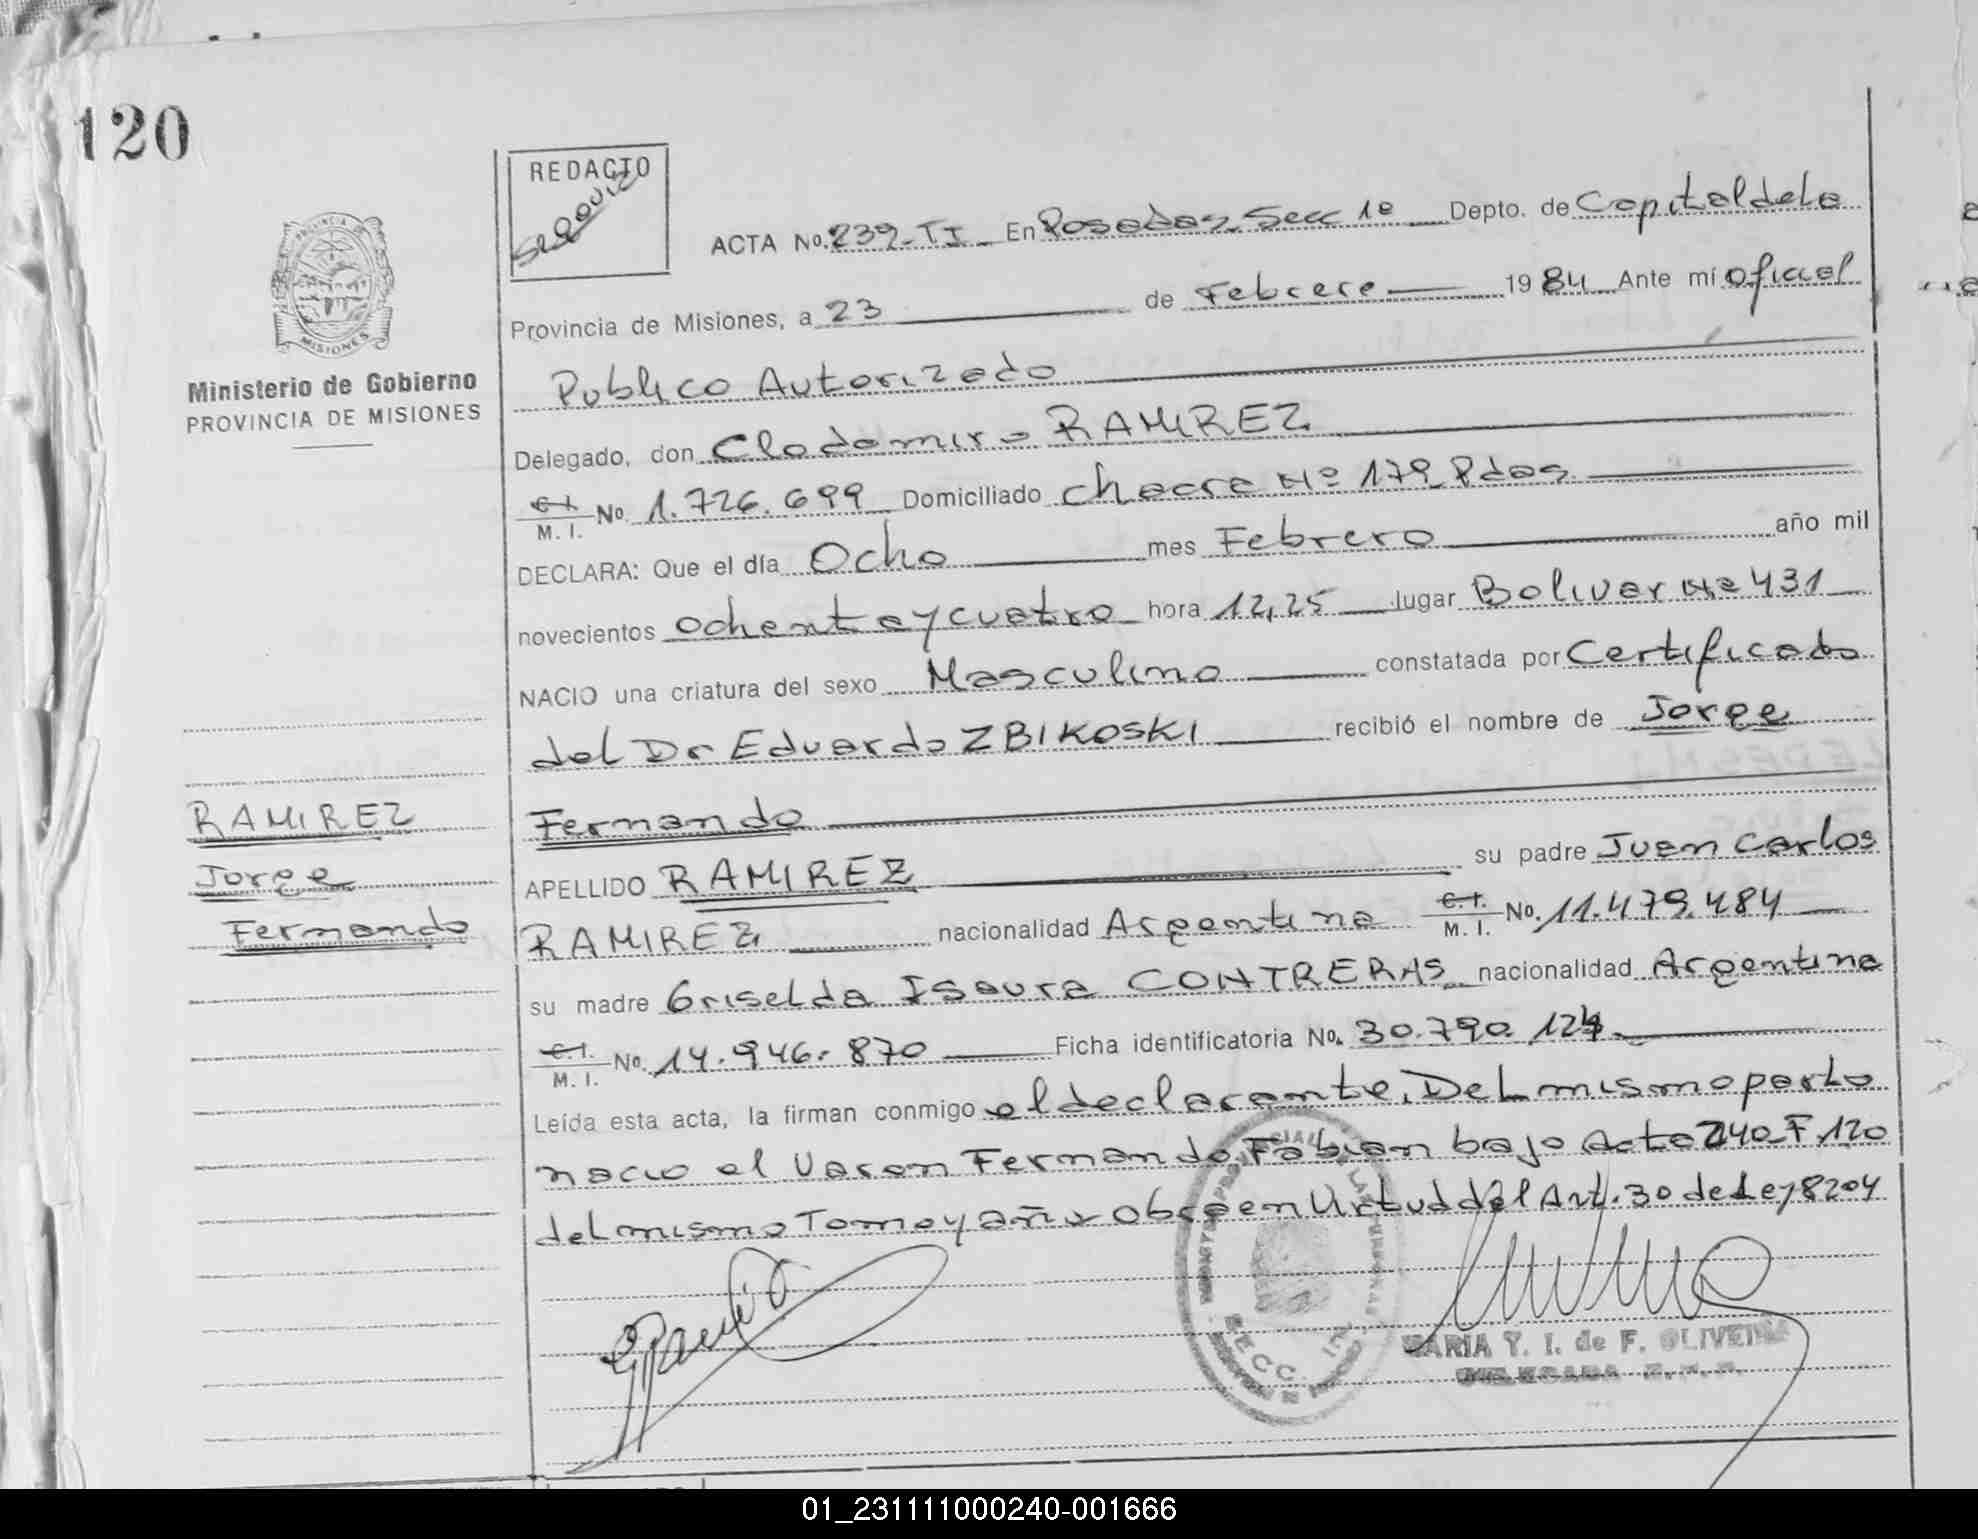 120
REDACTO
ACTA No. 239-TI En Posadas Secc 1º Depto. de Capital de la
Provincia de Misiones, a 23 de Febrero 1984 Ante mí Oficial
Publico Autorizado
Ministerio de Gobierno
PROVINCIA DE MISIONES
PROVINCIA DE
MISIONES
Delegado, don Clodomiro RAMIREZ
C.I.
M. I. No. 1.726.699 Domiciliado chacra Nº 179 Pdas
DECLARA: Que el día Ocho mes Febrero año mil
novecientos ochenta y cuatro hora 12,25 lugar Bolivar Nº 431
NACIO una criatura del sexo Masculino constatada por Certificado
del Dr Eduardo ZBIKOSKI recibió el nombre de Jorge
Fernando
RAMIREZ
Jorge
Fernando
APELLIDO RAMIREZ su padre Juan Carlos
RAMIREZ nacionalidad Argentina C.I. M. I. No. 11.479.484
su madre Griselda Isaura CONTRERAS nacionalidad Argentina
C.I. M. I. No. 14.946.870 Ficha identificatoria No. 30.790.124
Leída esta acta, la firman conmigo el declarante. Del mismo parto
nacio el Varon Fernando Fabian bajo Acta 240 F 120
del mismo Tomo y año obra en Virtud del Art. 30 de Ley 8204
SECC.
MARIA Y. I. de F. OLIVEIRA
01_231111000240-001666